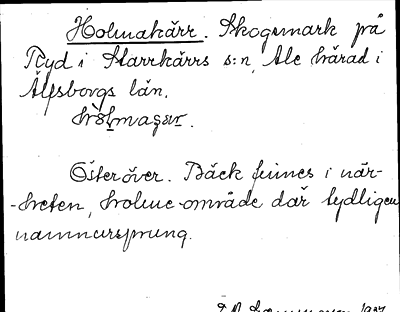 Holmakärr. Skogsmark på
Ryd i Starrkärrs s:n, Ale härad i
Älfsborgs län.
Österöver. Bäck finnes i när-
-heten, holme-område där tydligen
namnursprung.